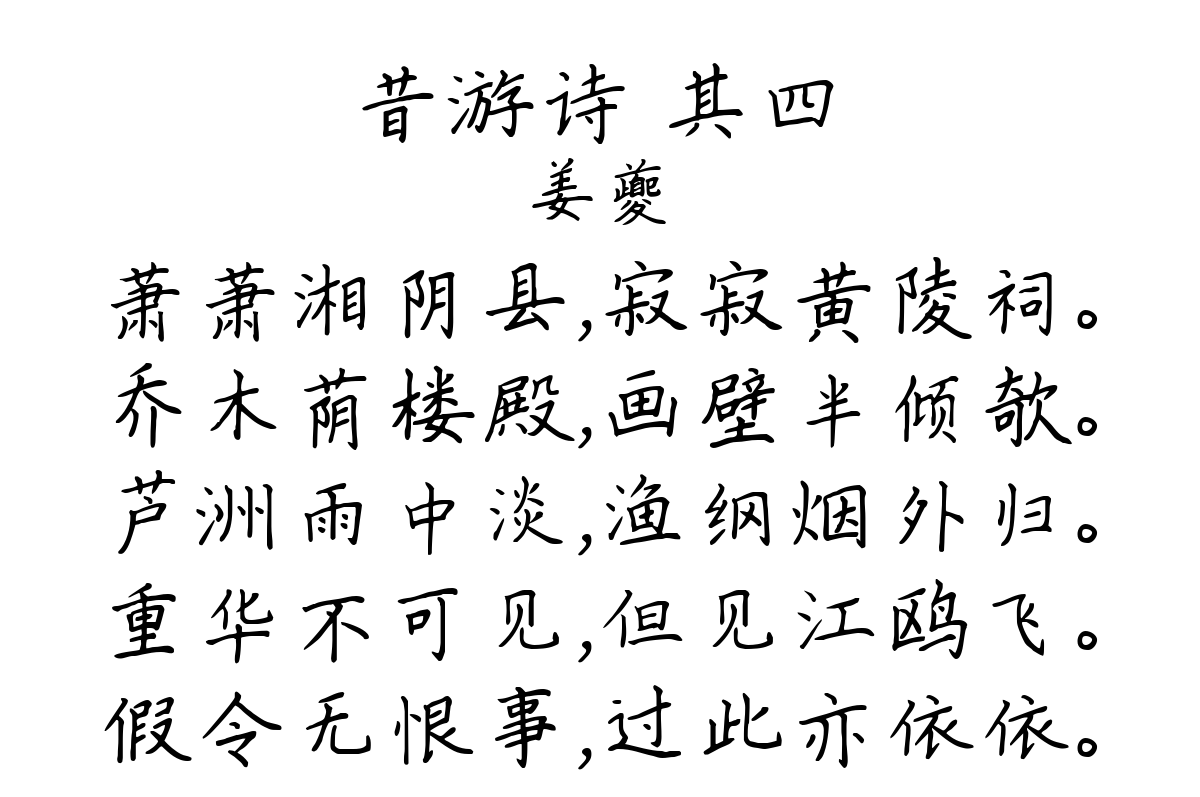 昔游诗 其四
姜夔
萧萧湘阴县,寂寂黄陵祠。
乔木荫楼殿,画壁半倾欹。
芦洲雨中淡,渔纲烟外归。
重华不可见,但见江鸥飞。
假令无恨事,过此亦依依。